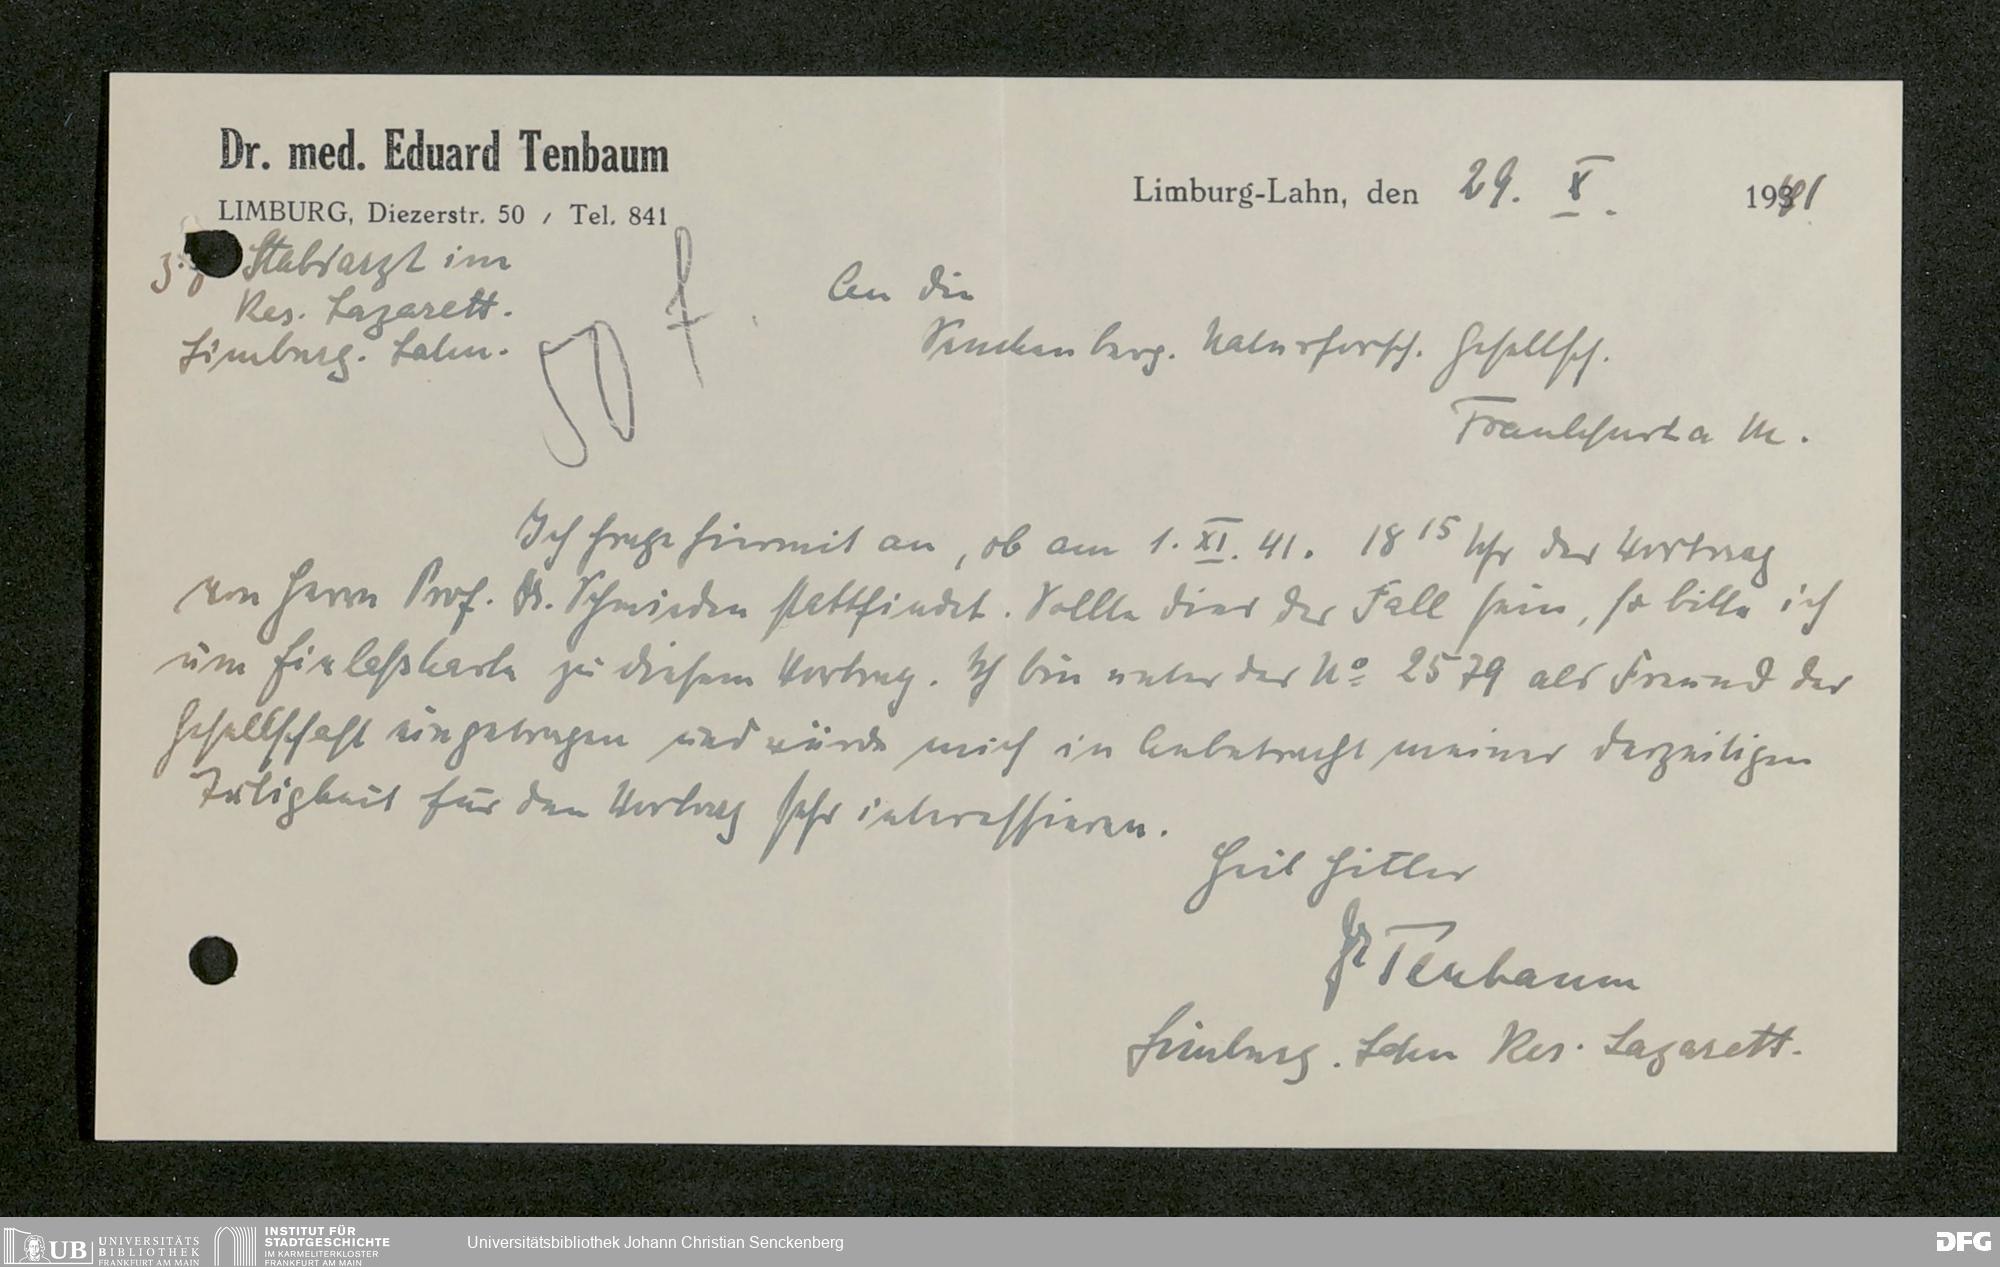 Dr. med. Eduard Tenbaum
LIMBURG, Diezerstr. 50 / Tel. 841
Limburg-Lahn, den 29. X. 1941
z. Stabsarzt im
Res. Lazarett.
Limburg. Lahn.
An die
Senckenberg. Naturforsch. Gesellsch.
Frankfurt a M.
Ich frage hiermit an, ob am 1. XI. 41. 18 15 Uhr der Vortrag
von Herrn Prof. Dr. Schmieden stattfindet. Sollte dies der Fall sein, so bitte ich
um Einlaßkarte zu diesem Vortrag. Ich bin unter der No 2579 als Freund der
Gesellschaft eingetragen und würde mich in Anbetracht meiner derzeitigen
Tätigkeit für den Vortrag sehr interessieren.
Heil Hitler
Dr Tenbaum
Limburg. Lahn Res. Lazarett.
UB UNIVERSITÄTS
BIBLIOTHEK
FRANKFURT AM MAIN
INSTITUT FÜR
STADTGESCHICHTE
IM KARMELITERKLOSTER
FRANKFURT AM MAIN
Universitätsbibliothek Johann Christian Senckenberg
DFG